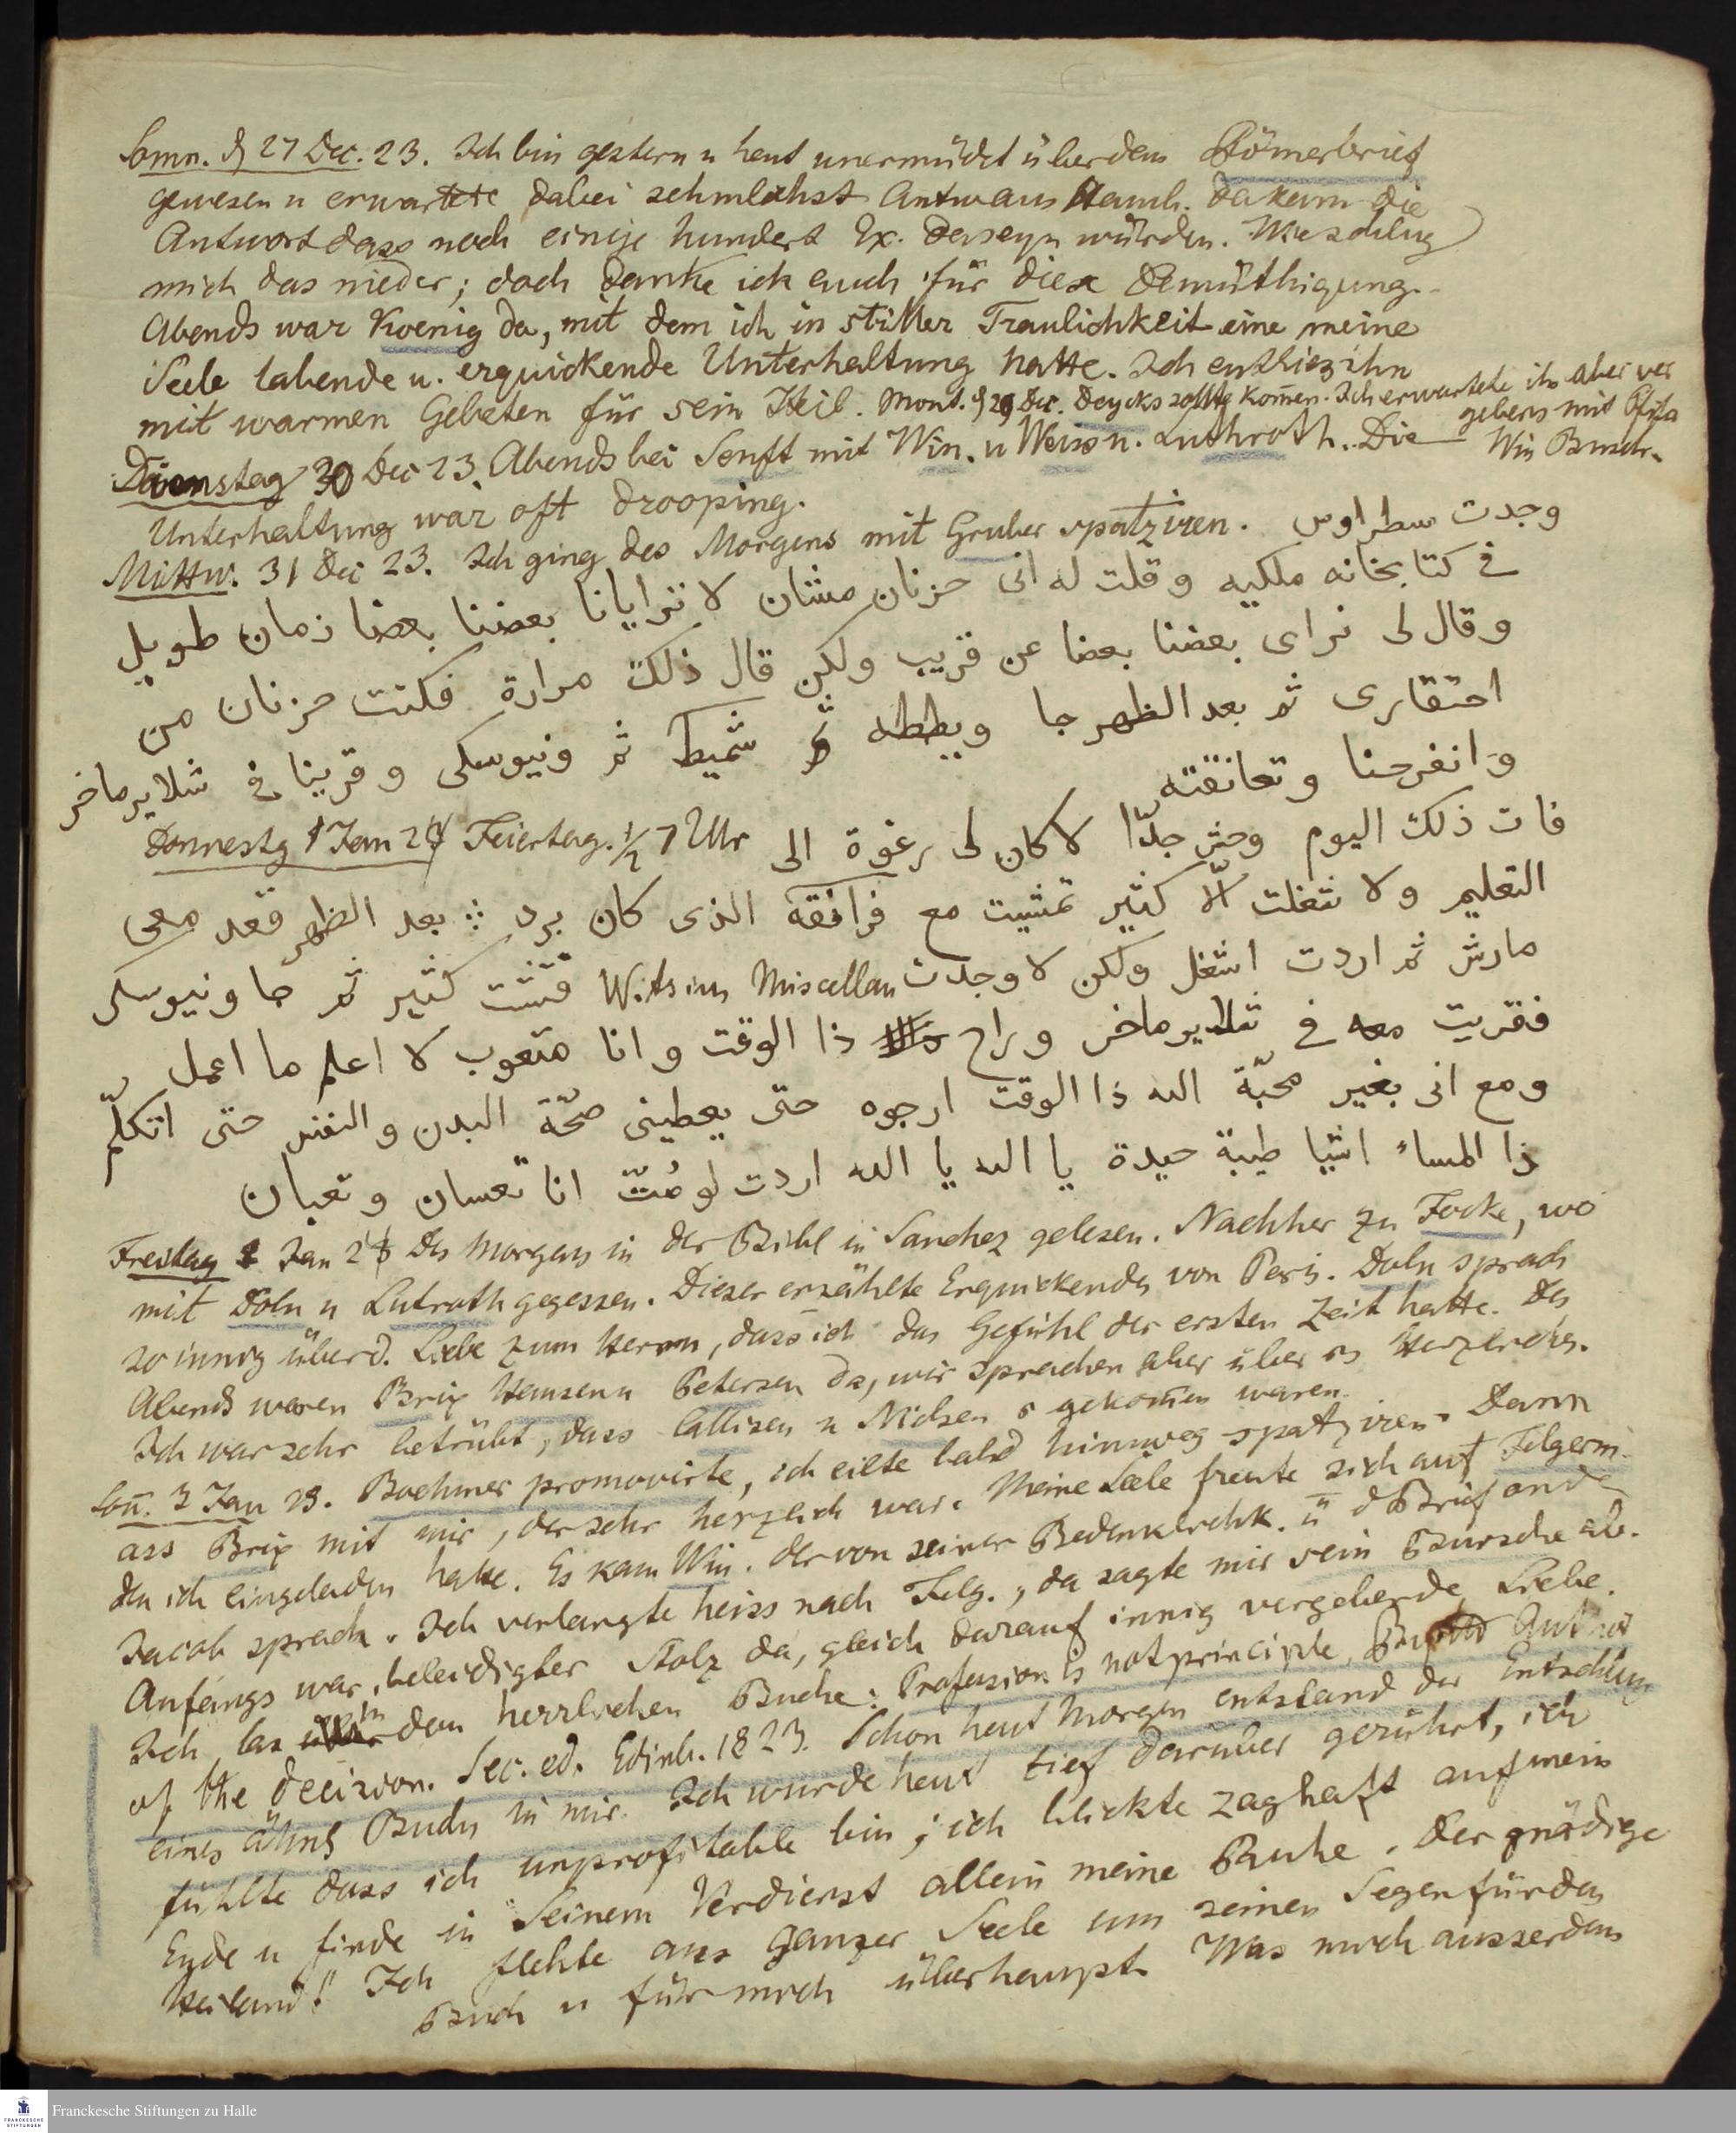 Sonn. d 27 Dec. 23. Ich bin gestern u heut unermüdet über dem Römerbrief
gewesen u erwartete dabei sehnlichst Antw aus Hamb. Da kam die
Antwort dass noch einige hundert Ex. da seyn würden. Wie schlug
mich das nieder; doch danke ich auch für diese Demüthigung.
Abends war Koenig da, mit dem ich in stiller Traulichkeit eine meine
Seele labende u. erquickende Unterhaltung hatte. Ich entliess ihn
mit warmen Gebeten für sein Heil. Mont. d 29 Dec. Deycks sollte kom̅en. Ich erwartete ihn aber ver
gebens mit
Dienstag 30 Dec 23. Abends bei Senft mit Win. u Weiss u. Luthroth. Die
Win Busch.
Unterhaltung war oft drooping.
Mittw. 31 Dec 23. Ich ging des Morgens mit Gruber spatziren. وجدت سطراوس
فى كتابخانه ملكيه وقلت له انى حزنان مشان لا نرايانا بعضنا بعضا زمان طويل
وقال لى نراى بعضنا بعضا عن قريب ولكن قال ذلك مرارة فكنت حزنان من
احتقارى ثم بعد الظهر جا ويططه ثم شميط ثم ونيوسكى وقرينا فى شلايرماخر
وانفرحنا وتعانقته
Donnestg 1 Jan 24 Feiertag. ½ 7 Uhr فات ذلك اليوم وحش جدّا لا كان لى رغوة الى
التعليم ولا شغلت الّا كثير تمشيت مع فرانقه الذى كان برد بعد الظهر قعد معى
مارش ثم اردت اشغل ولكن لا وجدت Witsius Miscellan فتشت كثير ثم جا ونيوسكى
فقريت معه فى شلايرماخر وراح ذا الوقت وانا متعوب لا اعلم ما اعمل
ومع انى بغير محبّة الله ذا الوقت ارجوه حتى يعطينى صحّة البدن والنفس حتى اتكلّم
ذا المساء اشيا طيبة جيدة يا الله يا الله اردت لو مُتّ انا تعسان وتعبان
Freitag 2 Jan 24 Des Morgens in der Bibl in Sanchez gelesen. Nachher zu Focke, wo
mit Doln u Lutroth gegessen. Dieser erzählte Erquickendes von Paris. Doln sprach
so innig über d. Liebe zum Herrn, dass ich das Gefühl der ersten Zeit hatte. Des
Abends waren Brix Hansen u Petersen da, wir sprachen aber über Herzliches.
Ich war sehr betrübt, dass Callisen u Nielsen gekom̅en waren.
Son̅. 3 Jan 23. Boehmer promovirte, ich eilte bald hinweg spatziren. Dann
ass Brix mit mir, der sehr herzlich war. Meine Seele freute sich auf Felgerm.
den ich eingeladen habe. Es kam Win. der von seiner Bedenklichk. ü d Brief an d
Jacob sprach. Ich verlangte heiss nach Felg., da sagte mir sein Bursche ab.
Anfangs war beleidigter Stolz da, gleich darauf innig vergebende Liebe.
Ich las in dem herrlichen Buche: Profession is not principle, By Author
of the decision. Sec. ed. Edinb. 1823. Schon heut Morgen entstand der Entschluss
eines ähnl Buchs in mir. Ich wurde heut tief darüber gerührt, ich
fühlte dass ich unprofitable bin; ich blickte zaghaft auf mein
Ende u finde in Seinem Verdienst allein meine Ruhe. Der gnädige
Heiland! Ich flehte aus ganzer Seele um seinen Segen für das
Buch u für mich überhaupt. Was mich ausserdem
Franckesche Stiftungen zu Halle
FRANCKESCHE
STIFTUNGEN